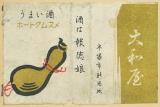 うまい酒
ホートクムスメ
酒は報徳娘
大和屋